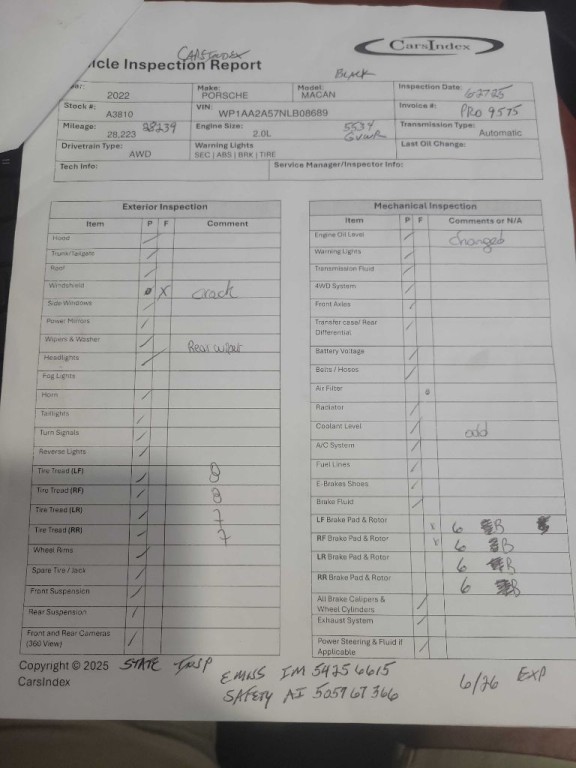 CARSINDEX
icle Inspection Report
CarsIndex
BLACK
2022
Make: PORSCHE
Model: MACAN
Inspection Date: 62725
Stock #: A3810
VIN: WP1AA2A57NLB08689
Invoice #: PRO 9575
Mileage: 28,223 28239
Engine Size: 2.0L
5534 GVWR
Transmission Type: Automatic
Drivetrain Type: AWD
Warning Lights
SEC | ABS | BRK | TIRE
Last Oil Change:
Tech Info:
Service Manager/Inspector Info:
Exterior Inspection
Item P F Comment
Hood
Trunk/Tailgate
Roof
Windshield X crack
Side Windows
Power Mirrors
Wipers & Washer Rear wiper
Headlights
Fog Lights
Horn
Taillights
Turn Signals
Reverse Lights
Tire Tread (LF) 8
Tire Tread (RF) 8
Tire Tread (LR) 7
Tire Tread (RR) 7
Wheel Rims
Spare Tire / Jack
Front Suspension
Rear Suspension
Front and Rear Cameras
(360 View)
Mechanical Inspection
Item P F Comments or N/A
Engine Oil Level changed
Warning Lights
Transmission Fluid
4WD System
Front Axles
Transfer case/ Rear
Differential
Battery Voltage
Belts / Hoses
Air Filter
Radiator
Coolant Level add
A/C System
Fuel Lines
E-Brakes Shoes
Brake Fluid
LF Brake Pad & Rotor x 6 B
RF Brake Pad & Rotor x 6 B
LR Brake Pad & Rotor 6 B
RR Brake Pad & Rotor 6 B
All Brake Calipers &
Wheel Cylinders
Exhaust System
Power Steering & Fluid if
Applicable
Copyright © 2025
CarsIndex
STATE INSP
EMISS IM 54256615
SAFETY AI 505967366
6/26 EXP